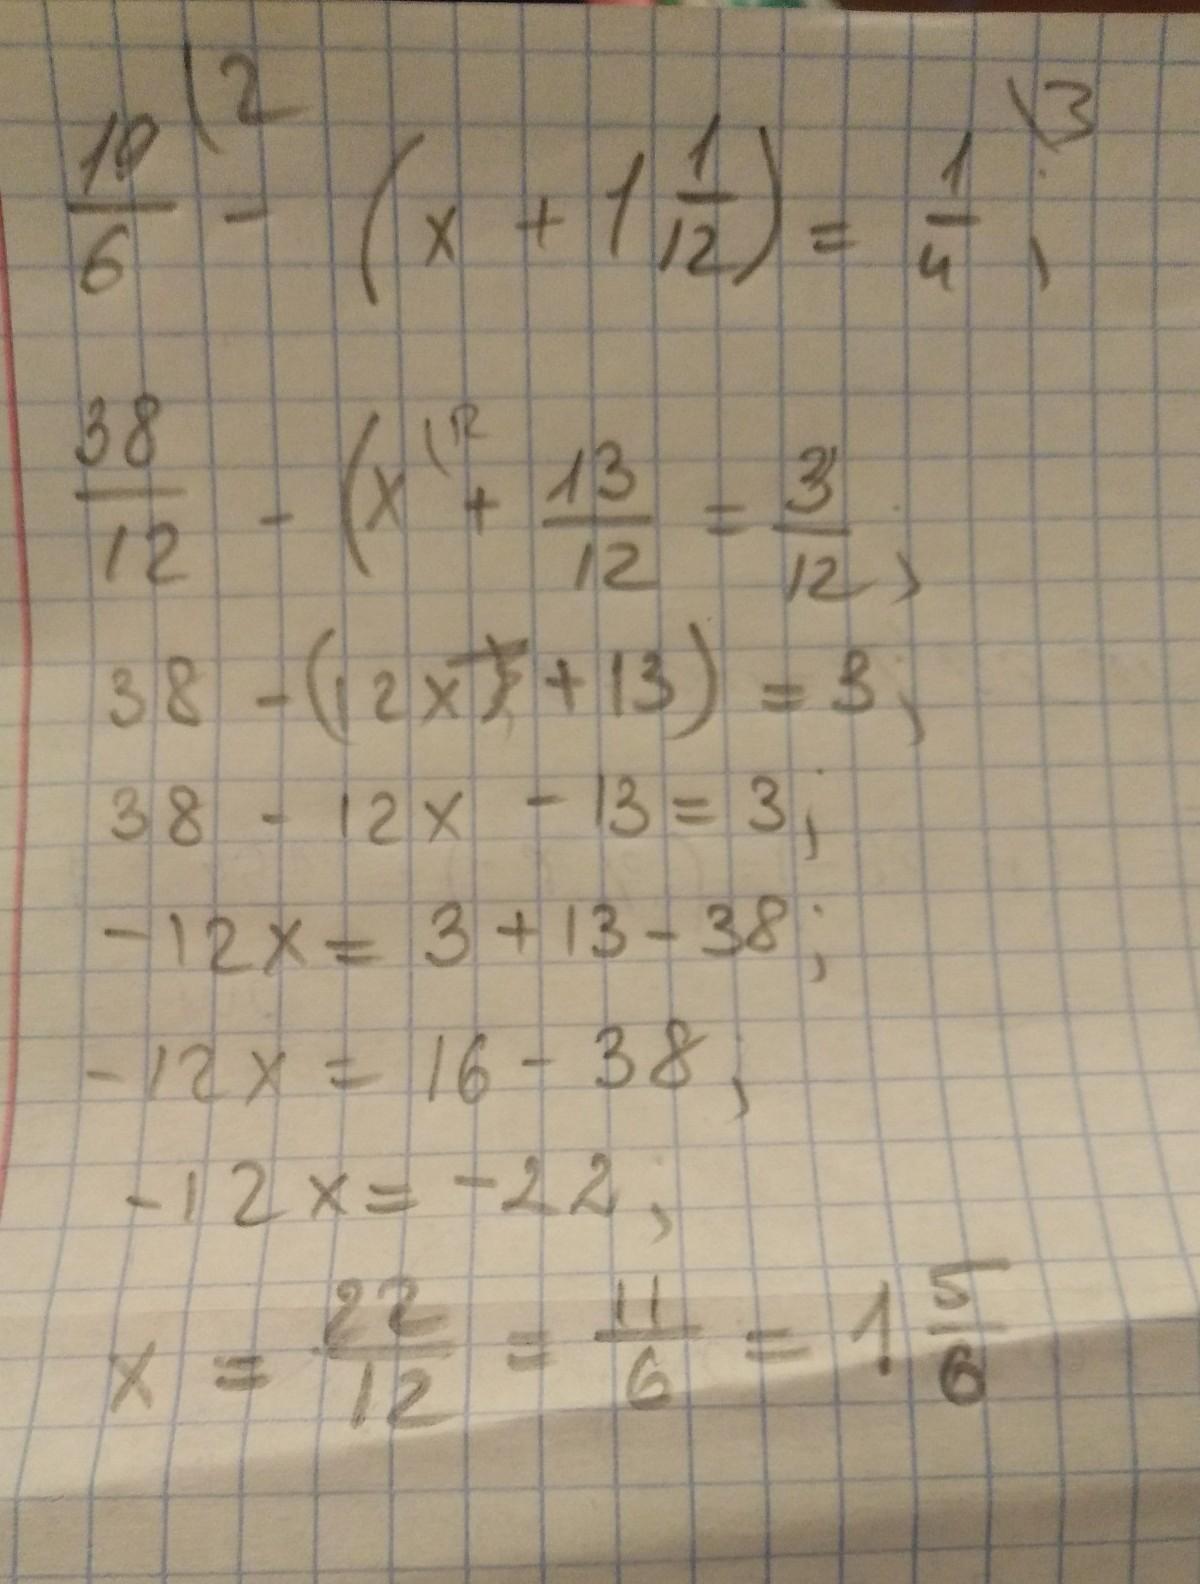 19/6 \2 - (x + 1 1/12) = 1/4 \3;
38/12 - (x \12 + 13/12 = 3/12;
38 - (12x + 13) = 3;
38 - 12x - 13 = 3;
-12x = 3 + 13 - 38;
-12x = 16 - 38;
-12x = -22;
x = 22/12 = 11/6 = 1 5/6